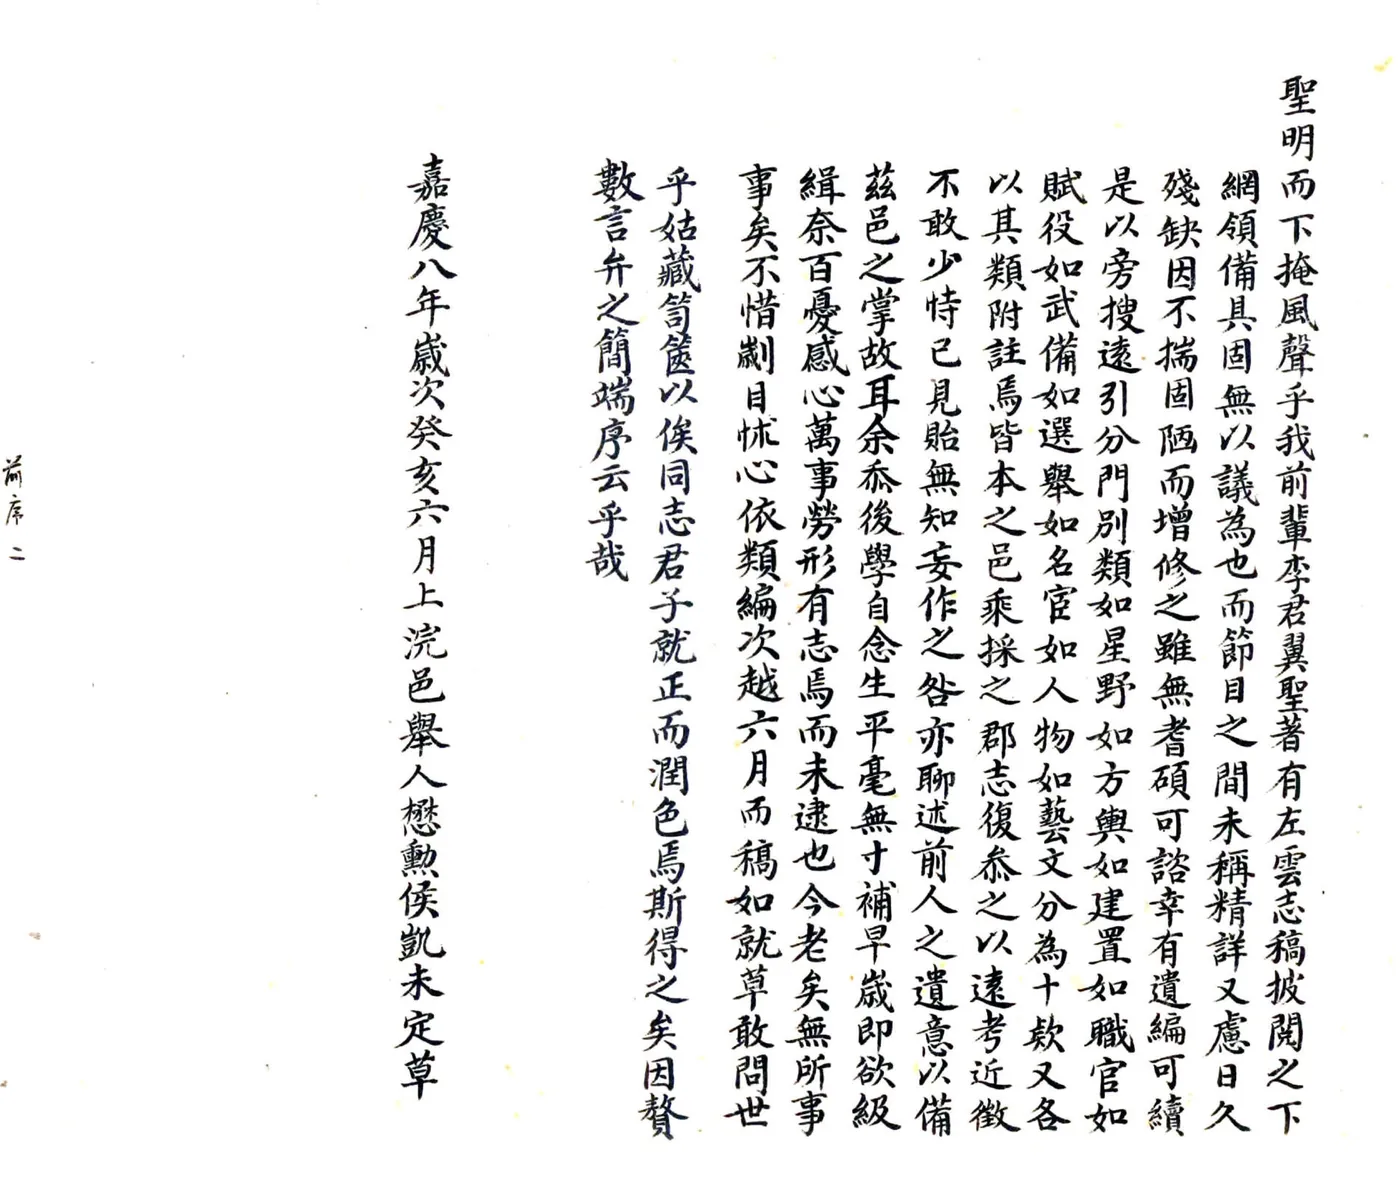 聖明而下掩風聲乎我前輩李君翼聖著有左雲志稿披閱之下
網領備具固無以議為也而節目之間未稱精詳又慮日久
殘缺因不揣固陋而增修之雖無耆碩可諮幸有遺編可續
是以旁搜遠引分門別類如星野如方輿如建置如職官如
賦役如武備如選舉如名宦如人物如藝文分為十款又各
以其類附註焉皆本之邑乘採之郡志復叅之以遠考近徵
不敢少恃己見貽無知妄作之咎亦聊述前人之遺意以備
茲邑之掌故耳余忝後學自念生平毫無寸補早歲即欲級
緝奈百憂感心萬事勞形有志焉而未逮也今老矣無所事
事矣不惜劌目怵心依類編次越六月而稿如就草敢問世
乎姑藏笥篋以俟同志君子就正而潤色焉斯得之矣因贅
數言弁之簡端序云乎哉
嘉慶八年歲次癸亥六月上浣邑舉人懋勳侯凱未定草
前序 二